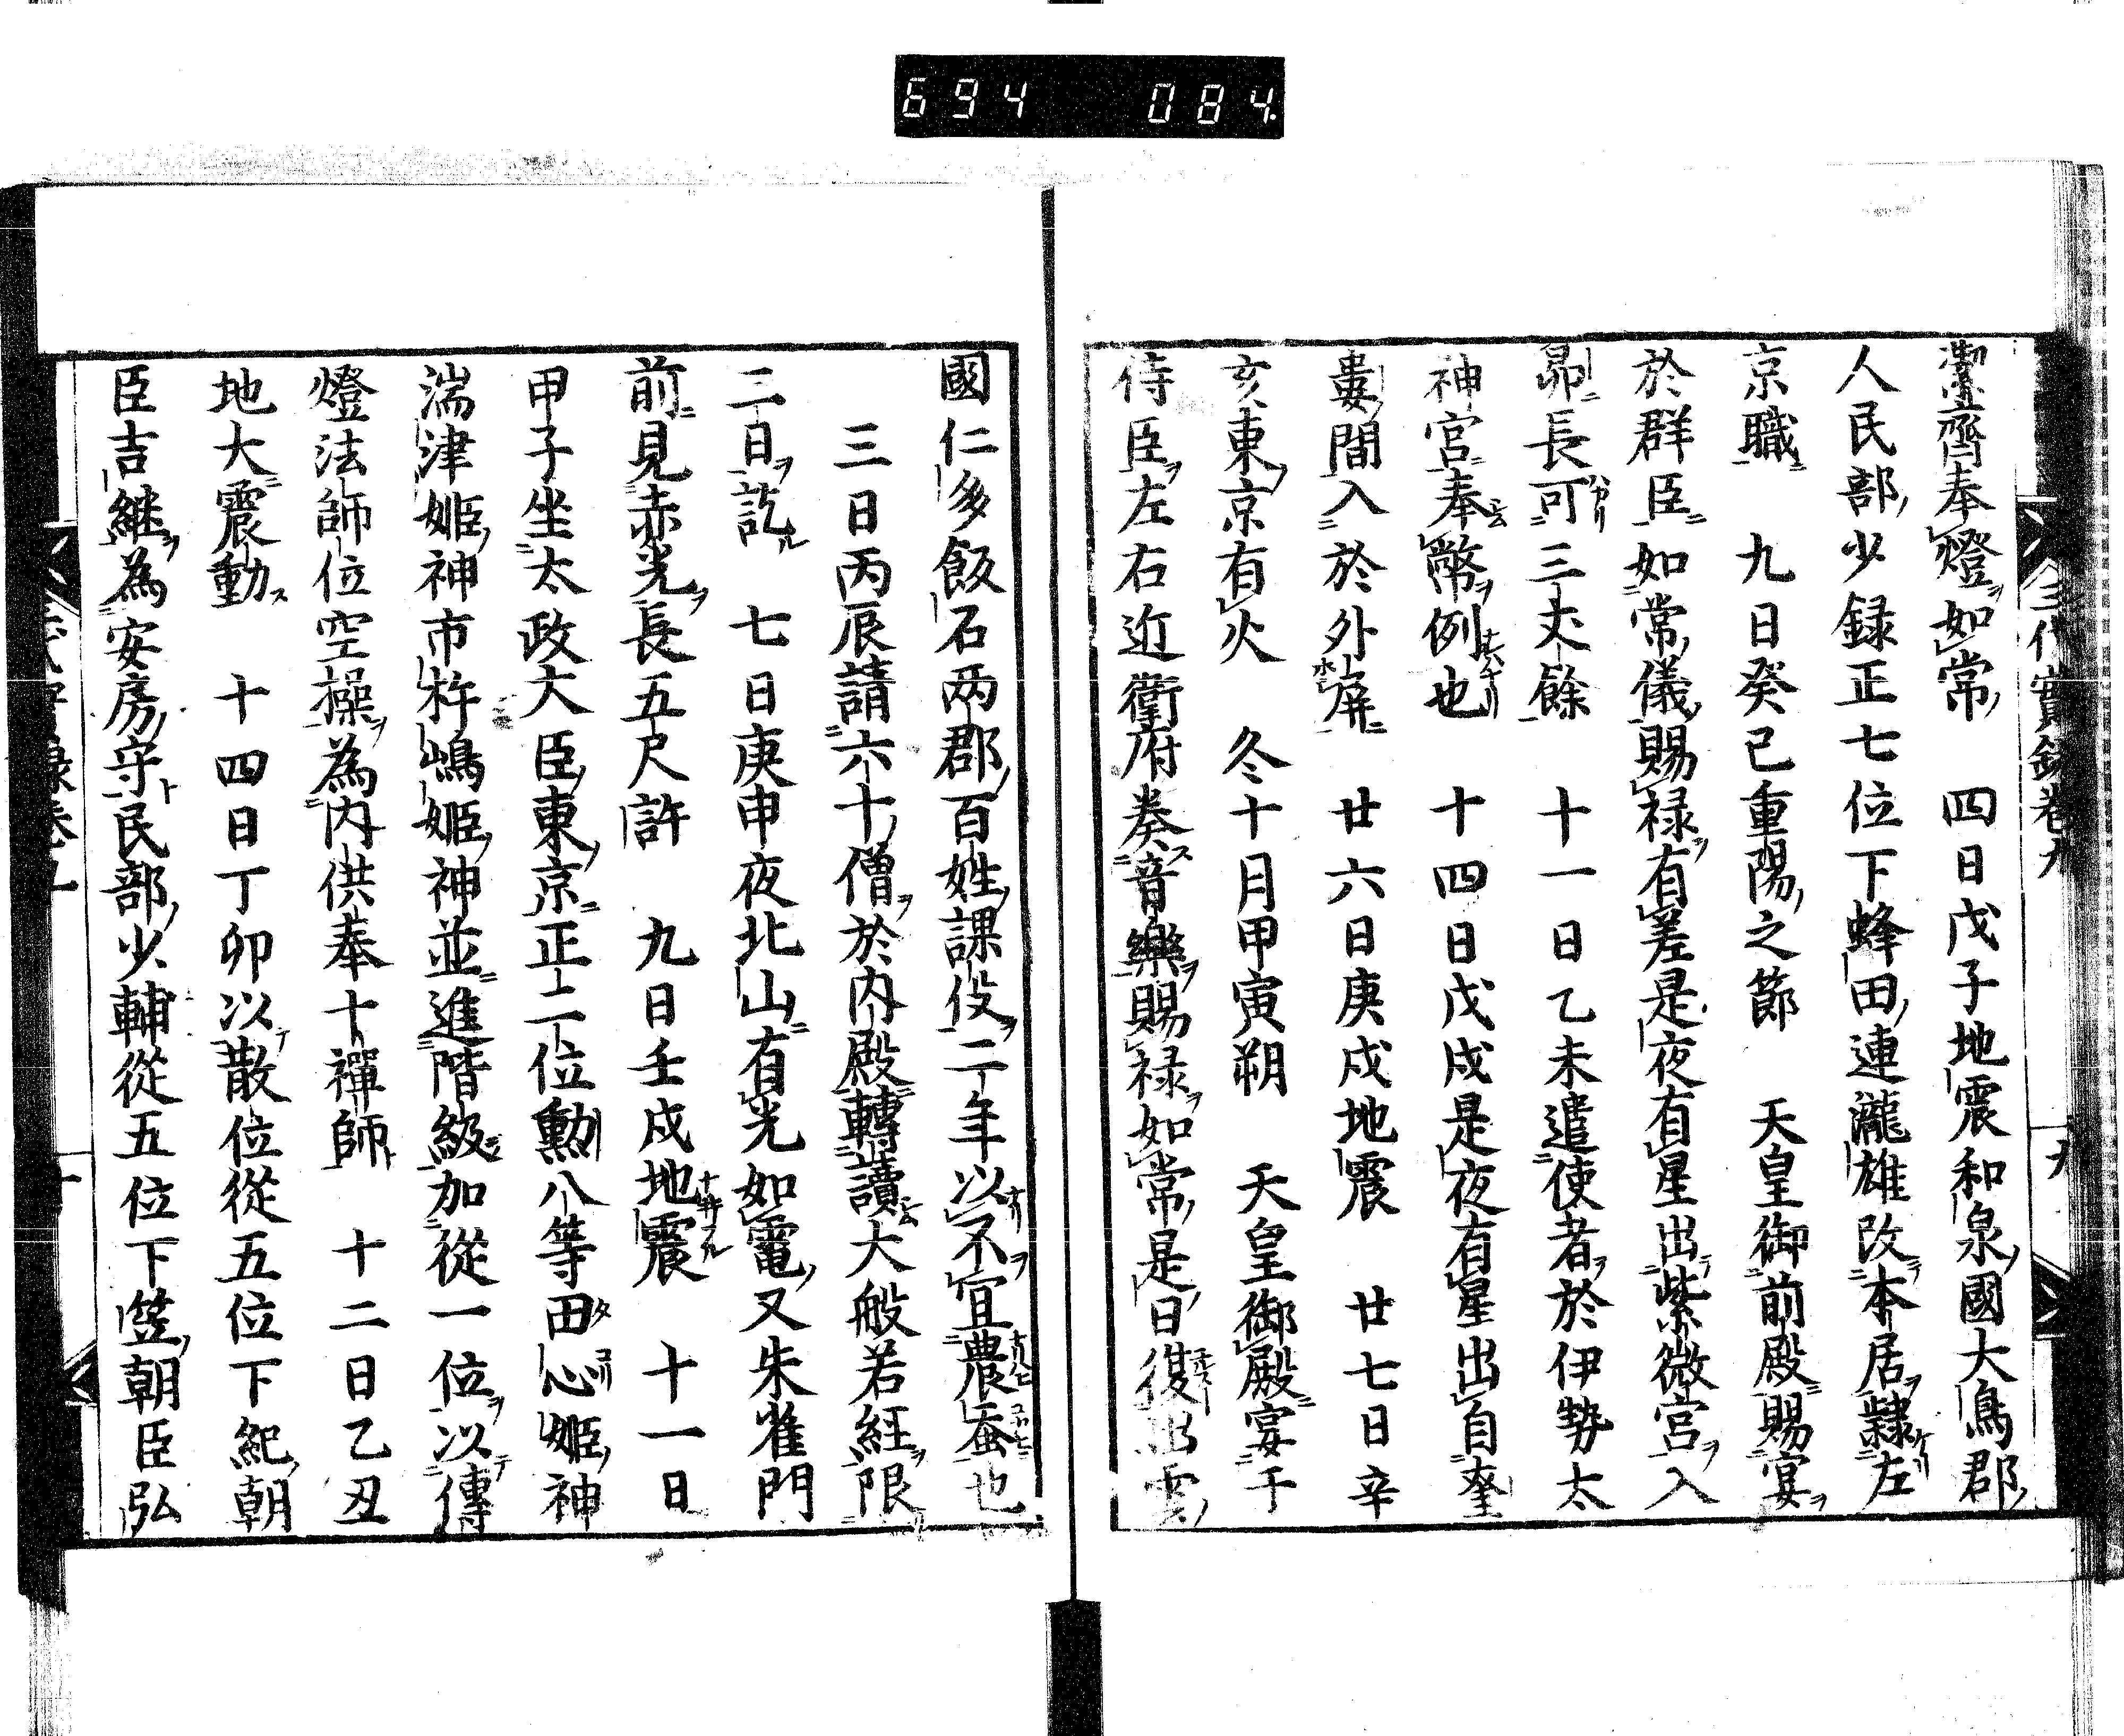 694 084.
三代實録卷九 九
潔齊奉燈如常 四日戊子地震和泉國大鳥郡
人民部少録正七位下蜂田連瀧雄改本居隷左
京職 九日癸巳重陽之節 天皇御前殿賜宴
於群臣如常儀賜禄有差是夜有星出紫微宮入
昴長可三丈餘 十一日乙未遣使者於伊勢太
神宮奉幣例也 十四日戊戌是夜有星出自奎
婁間入於外屏 廿六日庚戌地震 廿七日辛
亥東京有火 冬十月甲寅朔 天皇御殿宴于
侍臣左右近衛府奏音樂賜禄如常是日復出雲
國仁多飯石两郡百姓課役二年以不宜農蚕也
三日丙辰請六十僧於内殿轉讀大般若經限
二日訖 七日庚申夜北山有光如電又朱雀門
前見赤光長五尺許 九日壬戌地震 十一日
甲子坐太政大臣東京正二位勲八等田心姫神
湍津姫神市杵嶋姫神並進階級加從一位以傳
燈法師位空操為内供奉十禪師 十二日乙丑
地大震動 十四日丁卯以散位從五位下紀朝
臣吉継為安房守民部少輔從五位下笠朝臣弘